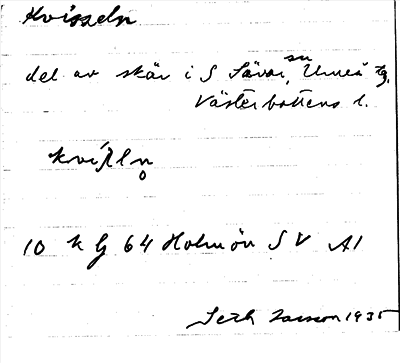 Kvisseln
del av skär i S Sävar sn, Umeå tg,
Västerbottens l.
10 k G 64 Holmön SV A1
Seth Larsson 1935